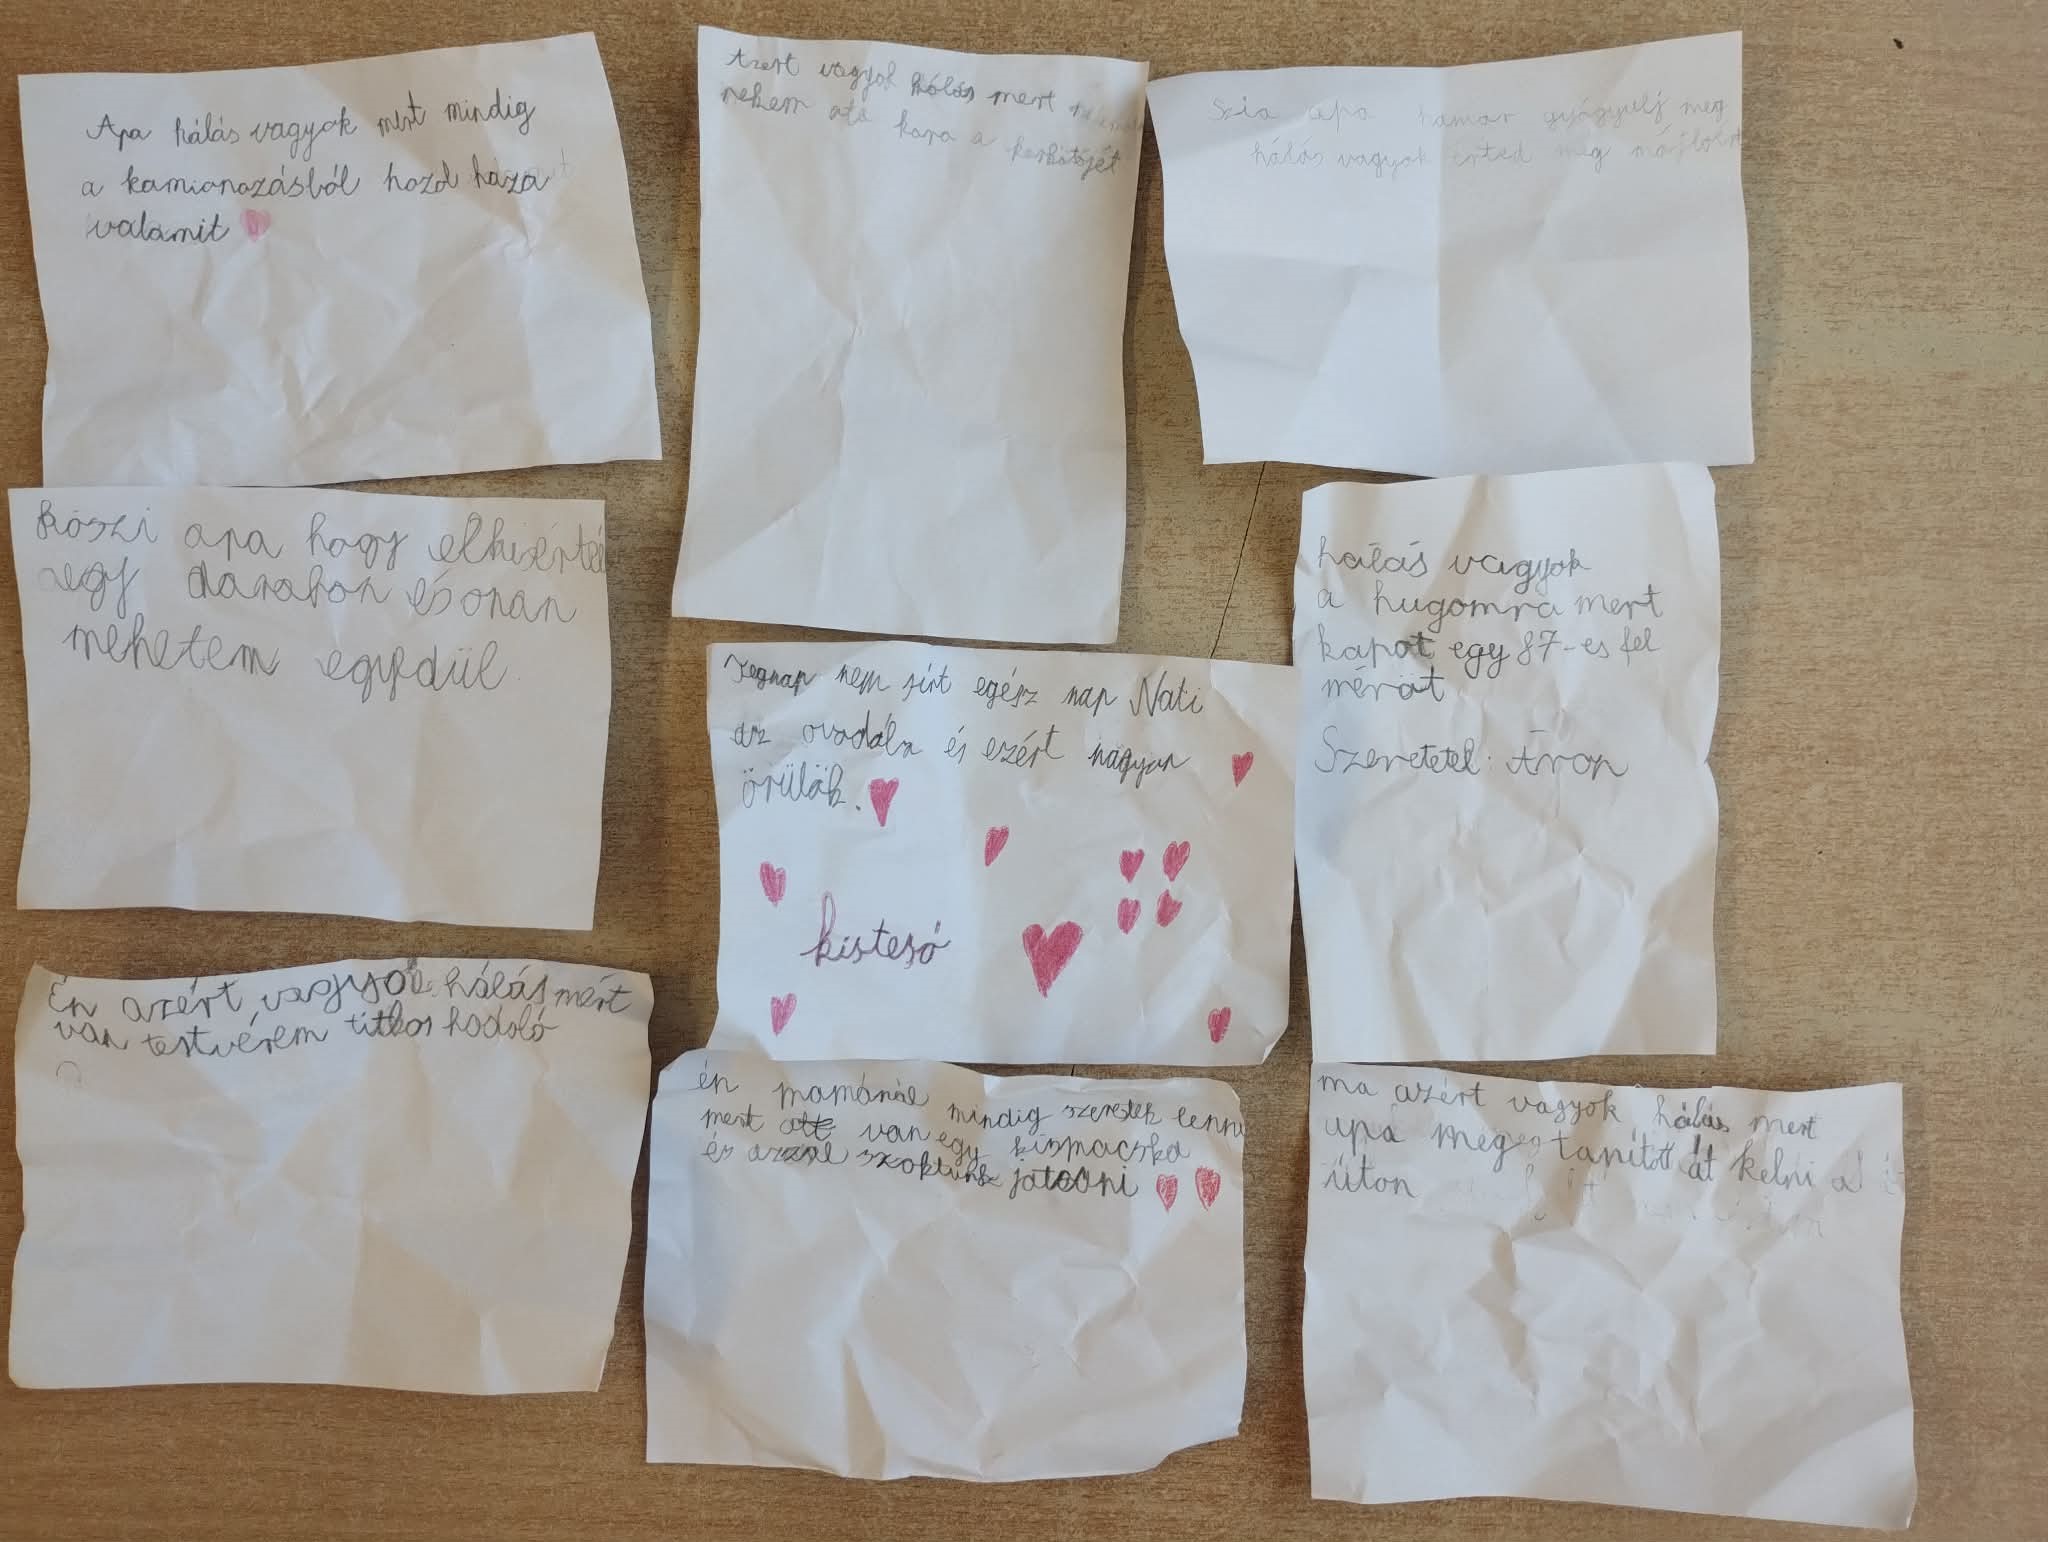 Apa hálás vagyok mert mindig
a kamionozásból hozol háza
valamit
Azert vagyok hálás mert
nekem oda kara a karkötőjét
Szia apa hamar gyógyulj meg
hálás vagyok érted meg
köszi apa hogy elkisérté
egy darabon és onan
mehetem egyedül.
Tegnap nem sírt egész nap Nati
az ovodába és ezért nagyon
örülök.
kistesó
hálás vagyok
a hugomra mert
kapot egy 87-es fel
mérőt
Szeretetel: Áron
Én azért vagyok hálás mert
van testvérem titkos hodoló
én mamánál mindig szeretek lenni
mert van egy kismacska
és azzal szoktunk játszani
ma azért vagyok hálás mert
apa meg tanitott át kelni a
úton